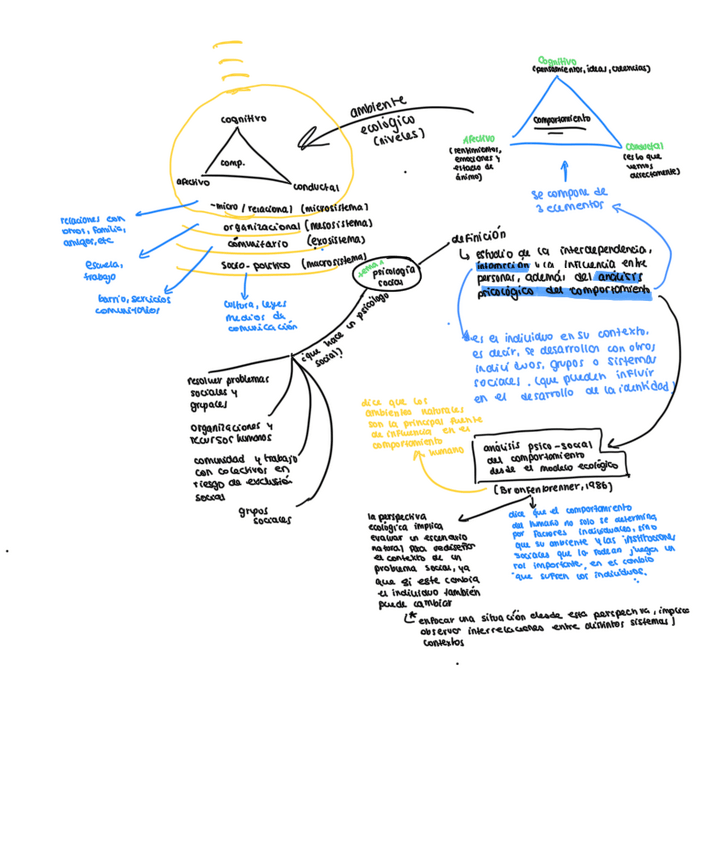 cognitivo
comp.
afectivo
conductal
-micro / relacional (microsistema)
organizacional (mesosistema)
comunitario (exosistema)
socio-politico (macrosistema)
relaciones con
otros, familia,
amigos, etc
escuela,
trabajo
barrio, servicios
comunitarios
cultura, leyes
medios de
comunicación
ambiente
ecológico
(niveles)
Cognitivo
(pensamientos, ideas, creencias)
comportamiento
Afectivo
(sentimientos,
emociones y
estado de
ánimo)
Conductal
(es lo que
vemos
directamente)
se compone de
3 elementos
tema 1
psicología
social
definición
estudio de la interdependencia,
interacción y la influencia entre
personas, además del análisis
psicológico del comportamiento
es el individuo en su contexto,
es decir, se desarrollan con otros
individuos, grupos o sistemas
sociales. (que pueden influir
en el desarrollo de la identidad)
¿que hace un psicólogo
social?
resolver problemas
sociales y
grupales
organizaciones y
recursos humanos
comunidad y trabajo
con colectivos en
riesgo de exclusión
social
grupos
sociales
dice que los
ambientes naturales
son la principal fuente
de influencia en el
comportamiento
humano
análisis psico-social
del comportamiento
desde el modelo ecológico
(Bronfenbrenner, 1986)
la perspectiva
ecológica implica
evaluar un escenario
natural para rediseñar
el contexto de un
problema social, ya
que si este cambia
el individuo también
puede cambiar
dice que el comportamiento
del humano no solo se determina
por factores individuales, sino
que su ambiente y las instituciones
sociales que lo rodean juegan un
rol importante, en el cambio
que sufren los individuos.
* enfocar una situación desde esta perspectiva, implica
observar interrelaciones entre distintos sistemas /
contextos